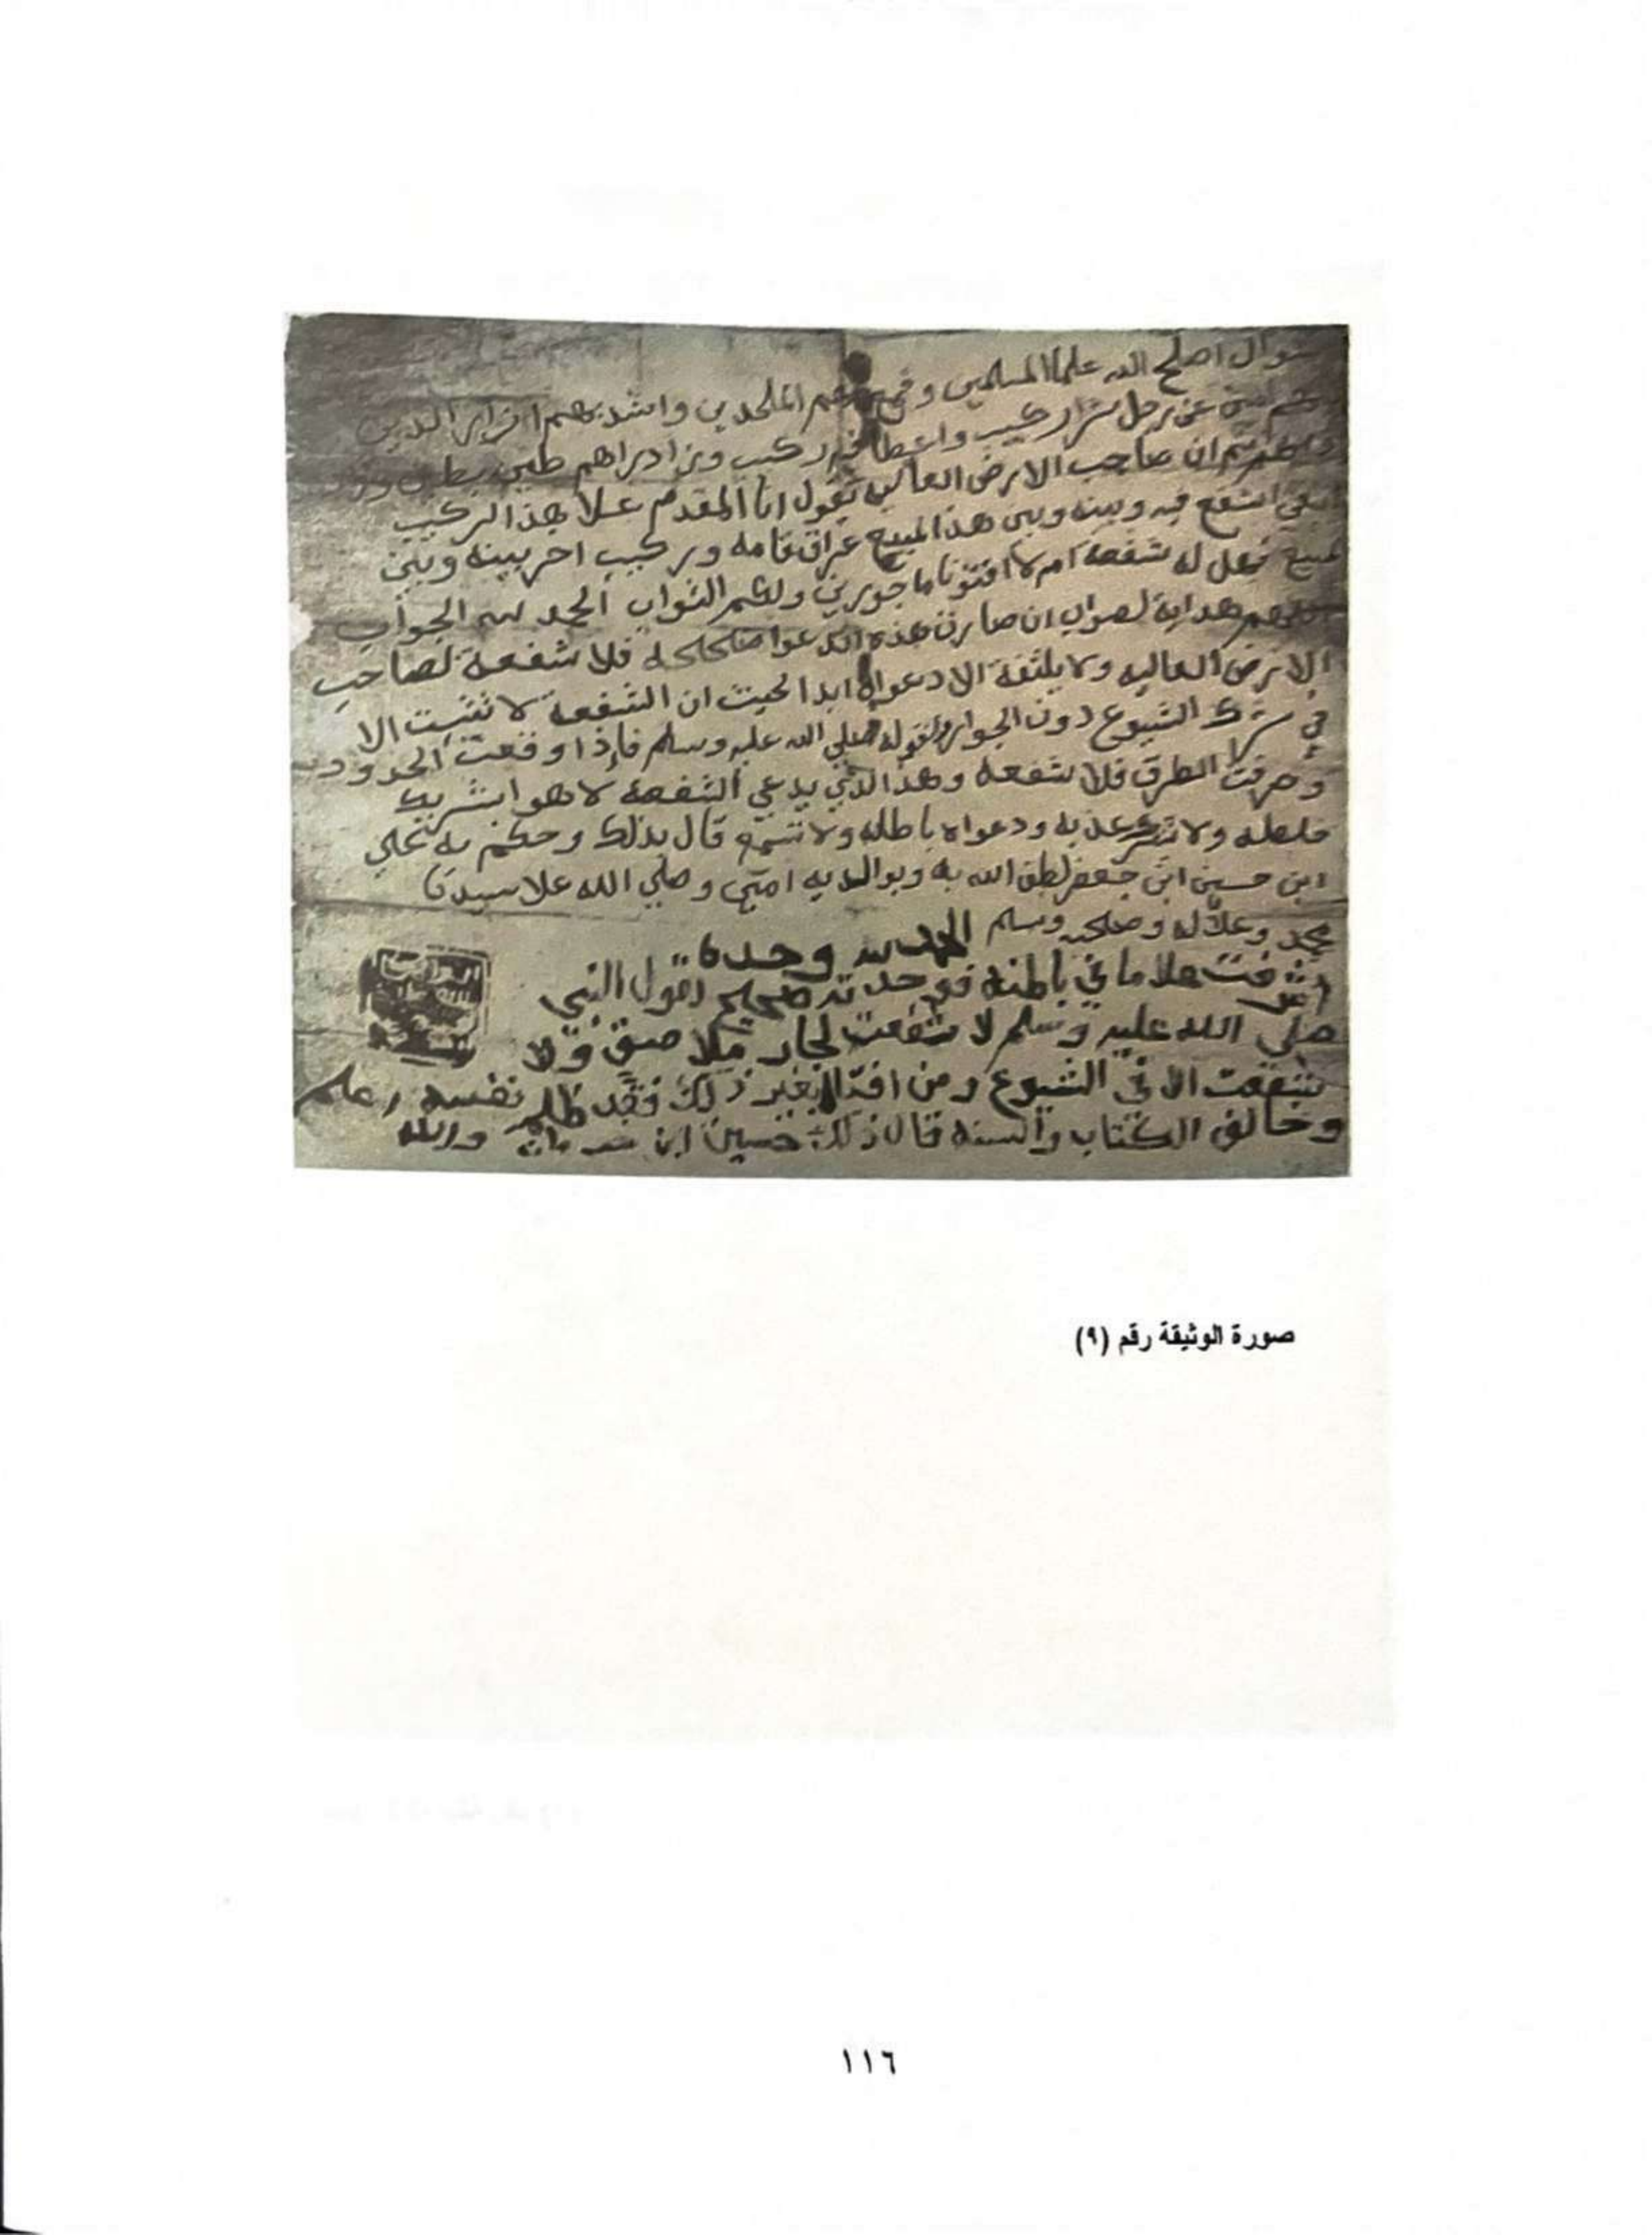 سوال اصلح الله علما المسلمين وقمع بهم الملحدين واشد بهم ازرار الدين
عن رجل شرا ركيب واعطا فيه ركيب وزاد دراهم طين بطين
ان صاحب الارض العاليه تقول انا المقدم علا هذا الركيب
اشفع فيه وبينه وبين هذا المبيع عراق قامه وركيب اخر بينه وبين
مبيع فهل له شفعة ام لا افتونا ماجورين ولكم الثواب الحمد لله الجواب
اللهم هداية لصواب ان صارت هذه الدعوا فلا شفعة لصاحب
الارض العاليه ولا يلتفة الا دعواه ابدا لحيث ان الشفعة لا تثبت الا
في شرك الشيوع دون الجوار لقوله صلي الله عليه وسلم فإذا وقعت الحدود
وصرفت الطرق فلا شفعة وهذا الذي يدعي الشفعة لا هوا بشريك
خلطه ولا ودعواه باطله ولا تسمع قال بذلك وحكم به علي
ابن حسين ابن جعفر لطف الله به وبوالديه امين وصلي الله علا سيدنا
محمد وعلا اله وصحبه وسلم
الحمد لله وحده
اشرفت علا ما في باطنه فوجدته صحيح لقول النبي
صلي الله عليه وسلم لا شفعت لجار ملا صق ولا
شفعت الا في الشيوع ومن افتا بغير ذلك فقد ظلم نفسه
وخالف الكتاب والسنه قال ذلك حسين ابن والله
صورة الوثيقة رقم (٩)
١١٦